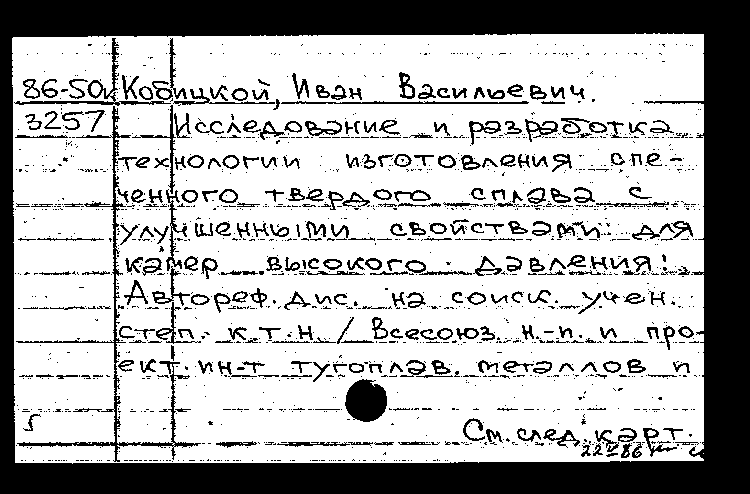 86-50к Кобицкой, Иван Васильевич.
3257 Исследование и разработка
технологии изготовления спе-
ченного твердого сплава с
улучшенными свойствами для
камер высокого давления:
Автореф. дис. на соиск. учен.
степ. к.т.н. / Всесоюз. н.-п. и про-
ект. ин-т тугоплав. металлов и
См. след. карт.